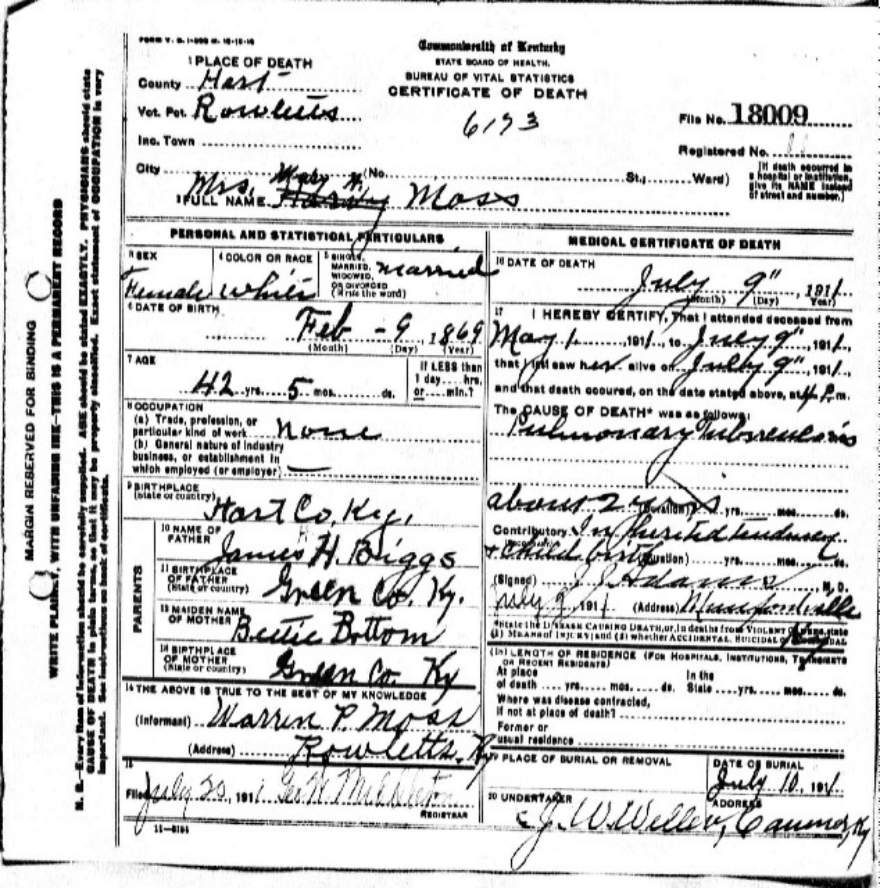 FORM V. S. 1-
Commonwealth of Kentucky
STATE BOARD OF HEALTH.
BUREAU OF VITAL STATISTICS
CERTIFICATE OF DEATH
1 PLACE OF DEATH
County Hart
Vot. Pct. Rowletts
Inc. Town
City (No. St.; Ward)
6173
File No. 18009
Registered No.
[If death occurred in a hospital or institution, give its NAME instead of street and number.]
2 FULL NAME Mrs. Moss
PERSONAL AND STATISTICAL PARTICULARS
3 SEX
Female
4 COLOR OR RACE
White
5 SINGLE, MARRIED, WIDOWED, OR DIVORCED (Write the word)
Married
6 DATE OF BIRTH
Feb - 9, 1869
(Month) (Day) (Year)
7 AGE
42 yrs. 5 mos. ds.
If LESS than 1 day.... hrs. or.... min.?
8 OCCUPATION
(a) Trade, profession, or particular kind of work none
(b) General nature of industry business, or establishment in which employed (or employer) —
9 BIRTHPLACE
(State or country) Hart Co, Ky.
PARENTS
10 NAME OF FATHER
James H. Biggs
11 BIRTHPLACE OF FATHER
(State or country) Green Co. Ky.
12 MAIDEN NAME OF MOTHER
Bettie Bottom
13 BIRTHPLACE OF MOTHER
(State or country) Green Co. Ky
14 THE ABOVE IS TRUE TO THE BEST OF MY KNOWLEDGE
(Informant) Warren P. Moss
(Address) Rowletts, Ky
15
Filed July 20, 1911 Geo W. Middleton
REGISTRAR
11—3184
MEDICAL CERTIFICATE OF DEATH
16 DATE OF DEATH
July 9", 1911
(Month) (Day) Year)
17 I HEREBY CERTIFY, That I attended deceased from
May 1, 1911, to July 9", 1911,
that I last saw her alive on July 9", 1911,
and that death occured, on the date stated above, at 4 P. m.
The CAUSE OF DEATH* was as follows:
Pulmonary Tuberculosis
about 2 yrs (Duration) yrs. mos. ds.
Contributory Inherited tendency
+ Child birth (Duration) yrs. mos. ds.
(Signed) J. J. Adams M. D.
July 9, 1911 (Address) Munfordville
Ky
*State the DISEASE CAUSING DEATH, or, in deaths from VIOLENT CAUSES, state
(1) MEANS OF INJURY; and (2) whether ACCIDENTAL, SUICIDAL or HOMICIDAL
(18) LENGTH OF RESIDENCE (FOR HOSPITALS, INSTITUTIONS, TRANSIENTS OR RECENT RESIDENTS)
At place of death .... yrs.... mos. ds. In the State .... yrs.... mos. ds.
Where was disease contracted,
if not at place of death?
Former or
usual residence
19 PLACE OF BURIAL OR REMOVAL
DATE OF BURIAL
July 10, 1911
20 UNDERTAKER
J. W. Weller,
ADDRESS
Canmer, Ky
MARGIN RESERVED FOR BINDING
WRITE PLAINLY, WITH UNFADING INK—THIS IS A PERMANENT RECORD
N. B.—Every item of information should be carefully supplied. AGE should be stated EXACTLY. PHYSICIANS should state
CAUSE OF DEATH in plain terms, so that it may be properly classified. Exact statement of OCCUPATION is very
important. See instructions on back of certificate.